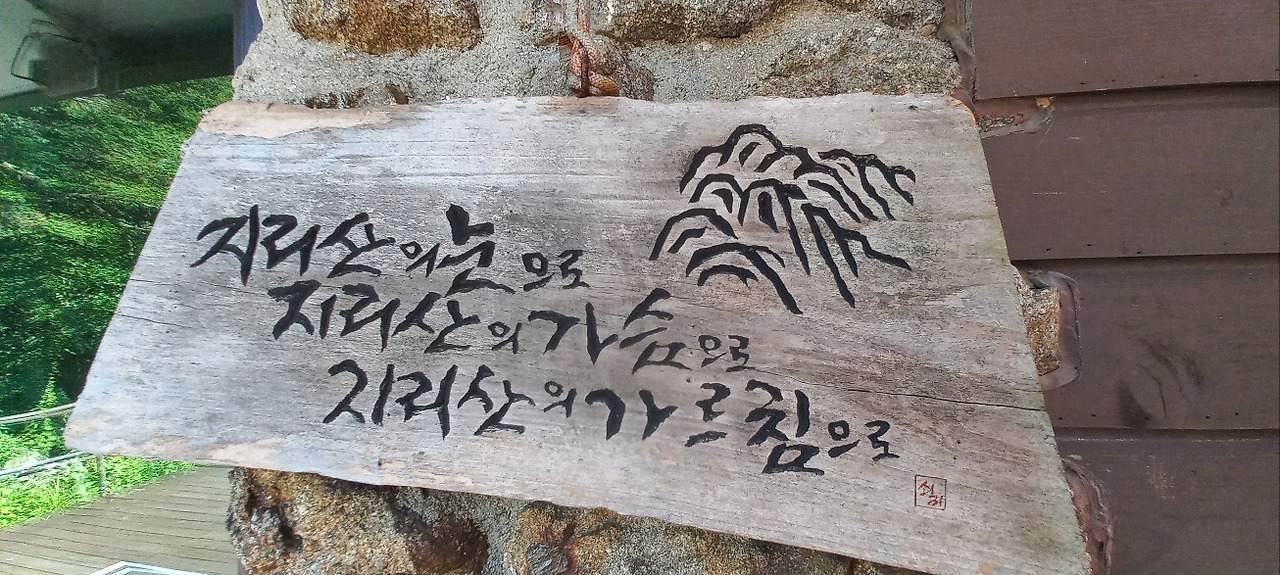 지리산의 눈으로
지리산의 가슴으로
지리산의 가르침으로